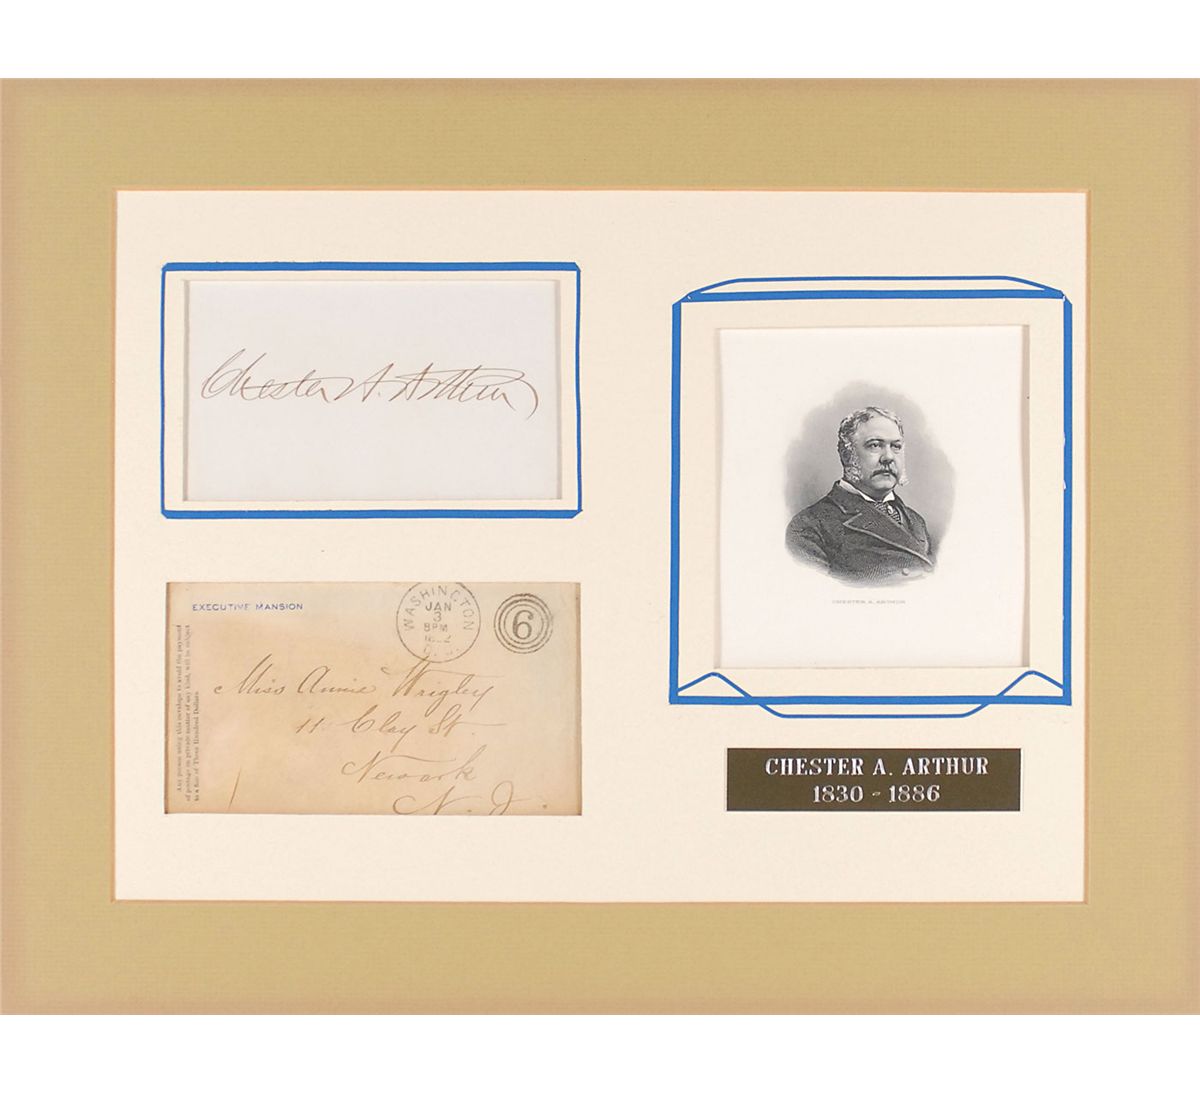 Chester A. Arthur
EXECUTIVE MANSION
WASHINGTON
JAN
3
8PM
1882
D.C.
6
Any person using this envelope to avoid the payment
of postage on private matter of any kind, will be subject
to a fine of Three Hundred Dollars.
Miss Annie Wrigley
11 Clay St.
Newark
N. J.
CHESTER A. ARTHUR
CHESTER A. ARTHUR
1830 - 1886